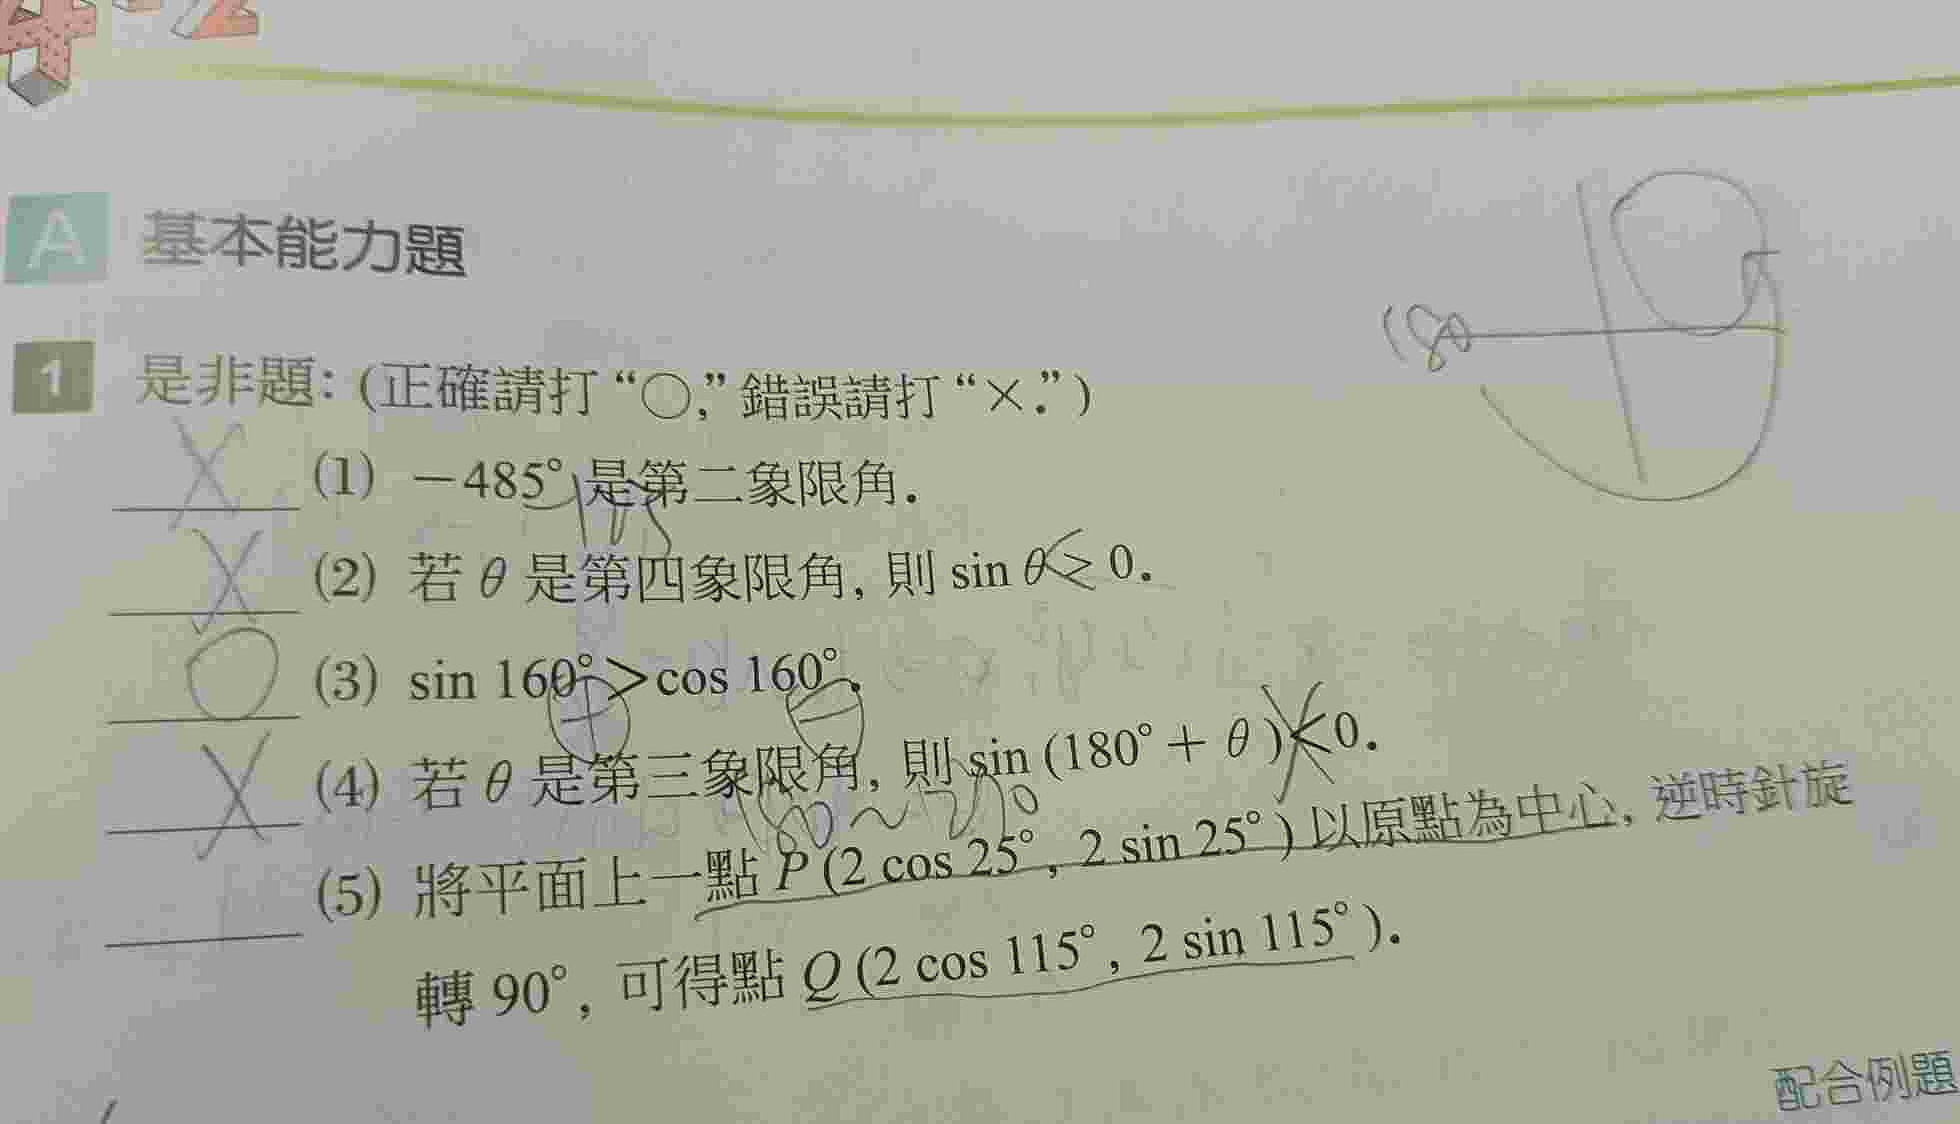 4-2
A 基本能力題
180
1 是非題: (正確請打 “○,” 錯誤請打 “×.”)
X (1) －485° 是第二象限角.
X (2) 若 θ 是第四象限角, 則 sin θ > 0.
<
O (3) sin 160° > cos 160°.
X (4) 若 θ 是第三象限角, 則 sin (180° + θ) < 0.
180~270
(5) 將平面上一點 P (2 cos 25°, 2 sin 25°) 以原點為中心, 逆時針旋
轉 90°, 可得點 Q (2 cos 115°, 2 sin 115°).
配合例題